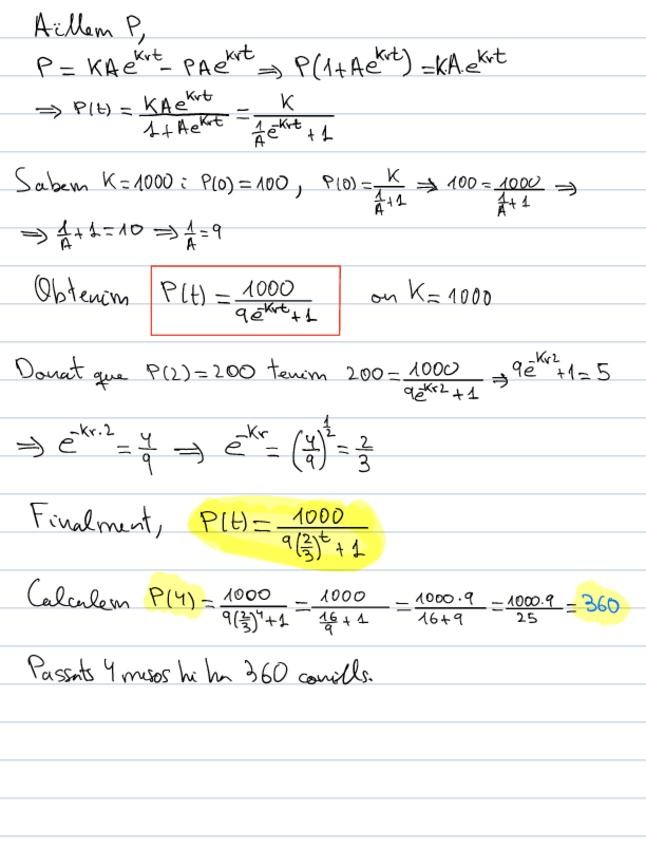 Aïllem P,
P = KAe^{Krt} - PAe^{Krt} ⇒ P(1+Ae^{Krt}) = KA.e^{Krt}
⇒ P(t) = \frac{KAe^{Krt}}{1+Ae^{Krt}} = \frac{K}{\frac{1}{A}e^{-Krt}+1}
Sabem K=1000 i P(0)=100, P(0)=\frac{K}{\frac{1}{A}+1} ⇒ 100=\frac{1000}{\frac{1}{A}+1} ⇒
⇒ \frac{1}{A}+1=10 ⇒ \frac{1}{A}=9
Obtenim P(t)=\frac{1000}{9e^{-Krt}+1} on K=1000
Donat que P(2)=200 tenim 200=\frac{1000}{9e^{-Kr2}+1} ⇒ 9e^{-Kr2}+1=5
⇒ e^{-Kr·2}=\frac{4}{9} ⇒ e^{-Kr}=(\frac{4}{9})^{\frac{1}{2}}=\frac{2}{3}
Finalment, P(t)=\frac{1000}{9(\frac{2}{3})^t+1}
Calculem P(4)=\frac{1000}{9(\frac{2}{3})^4+1}=\frac{1000}{\frac{16}{9}+1}=\frac{1000·9}{16+9}=\frac{1000·9}{25}=360
Passats 4 mesos hi ha 360 conills.